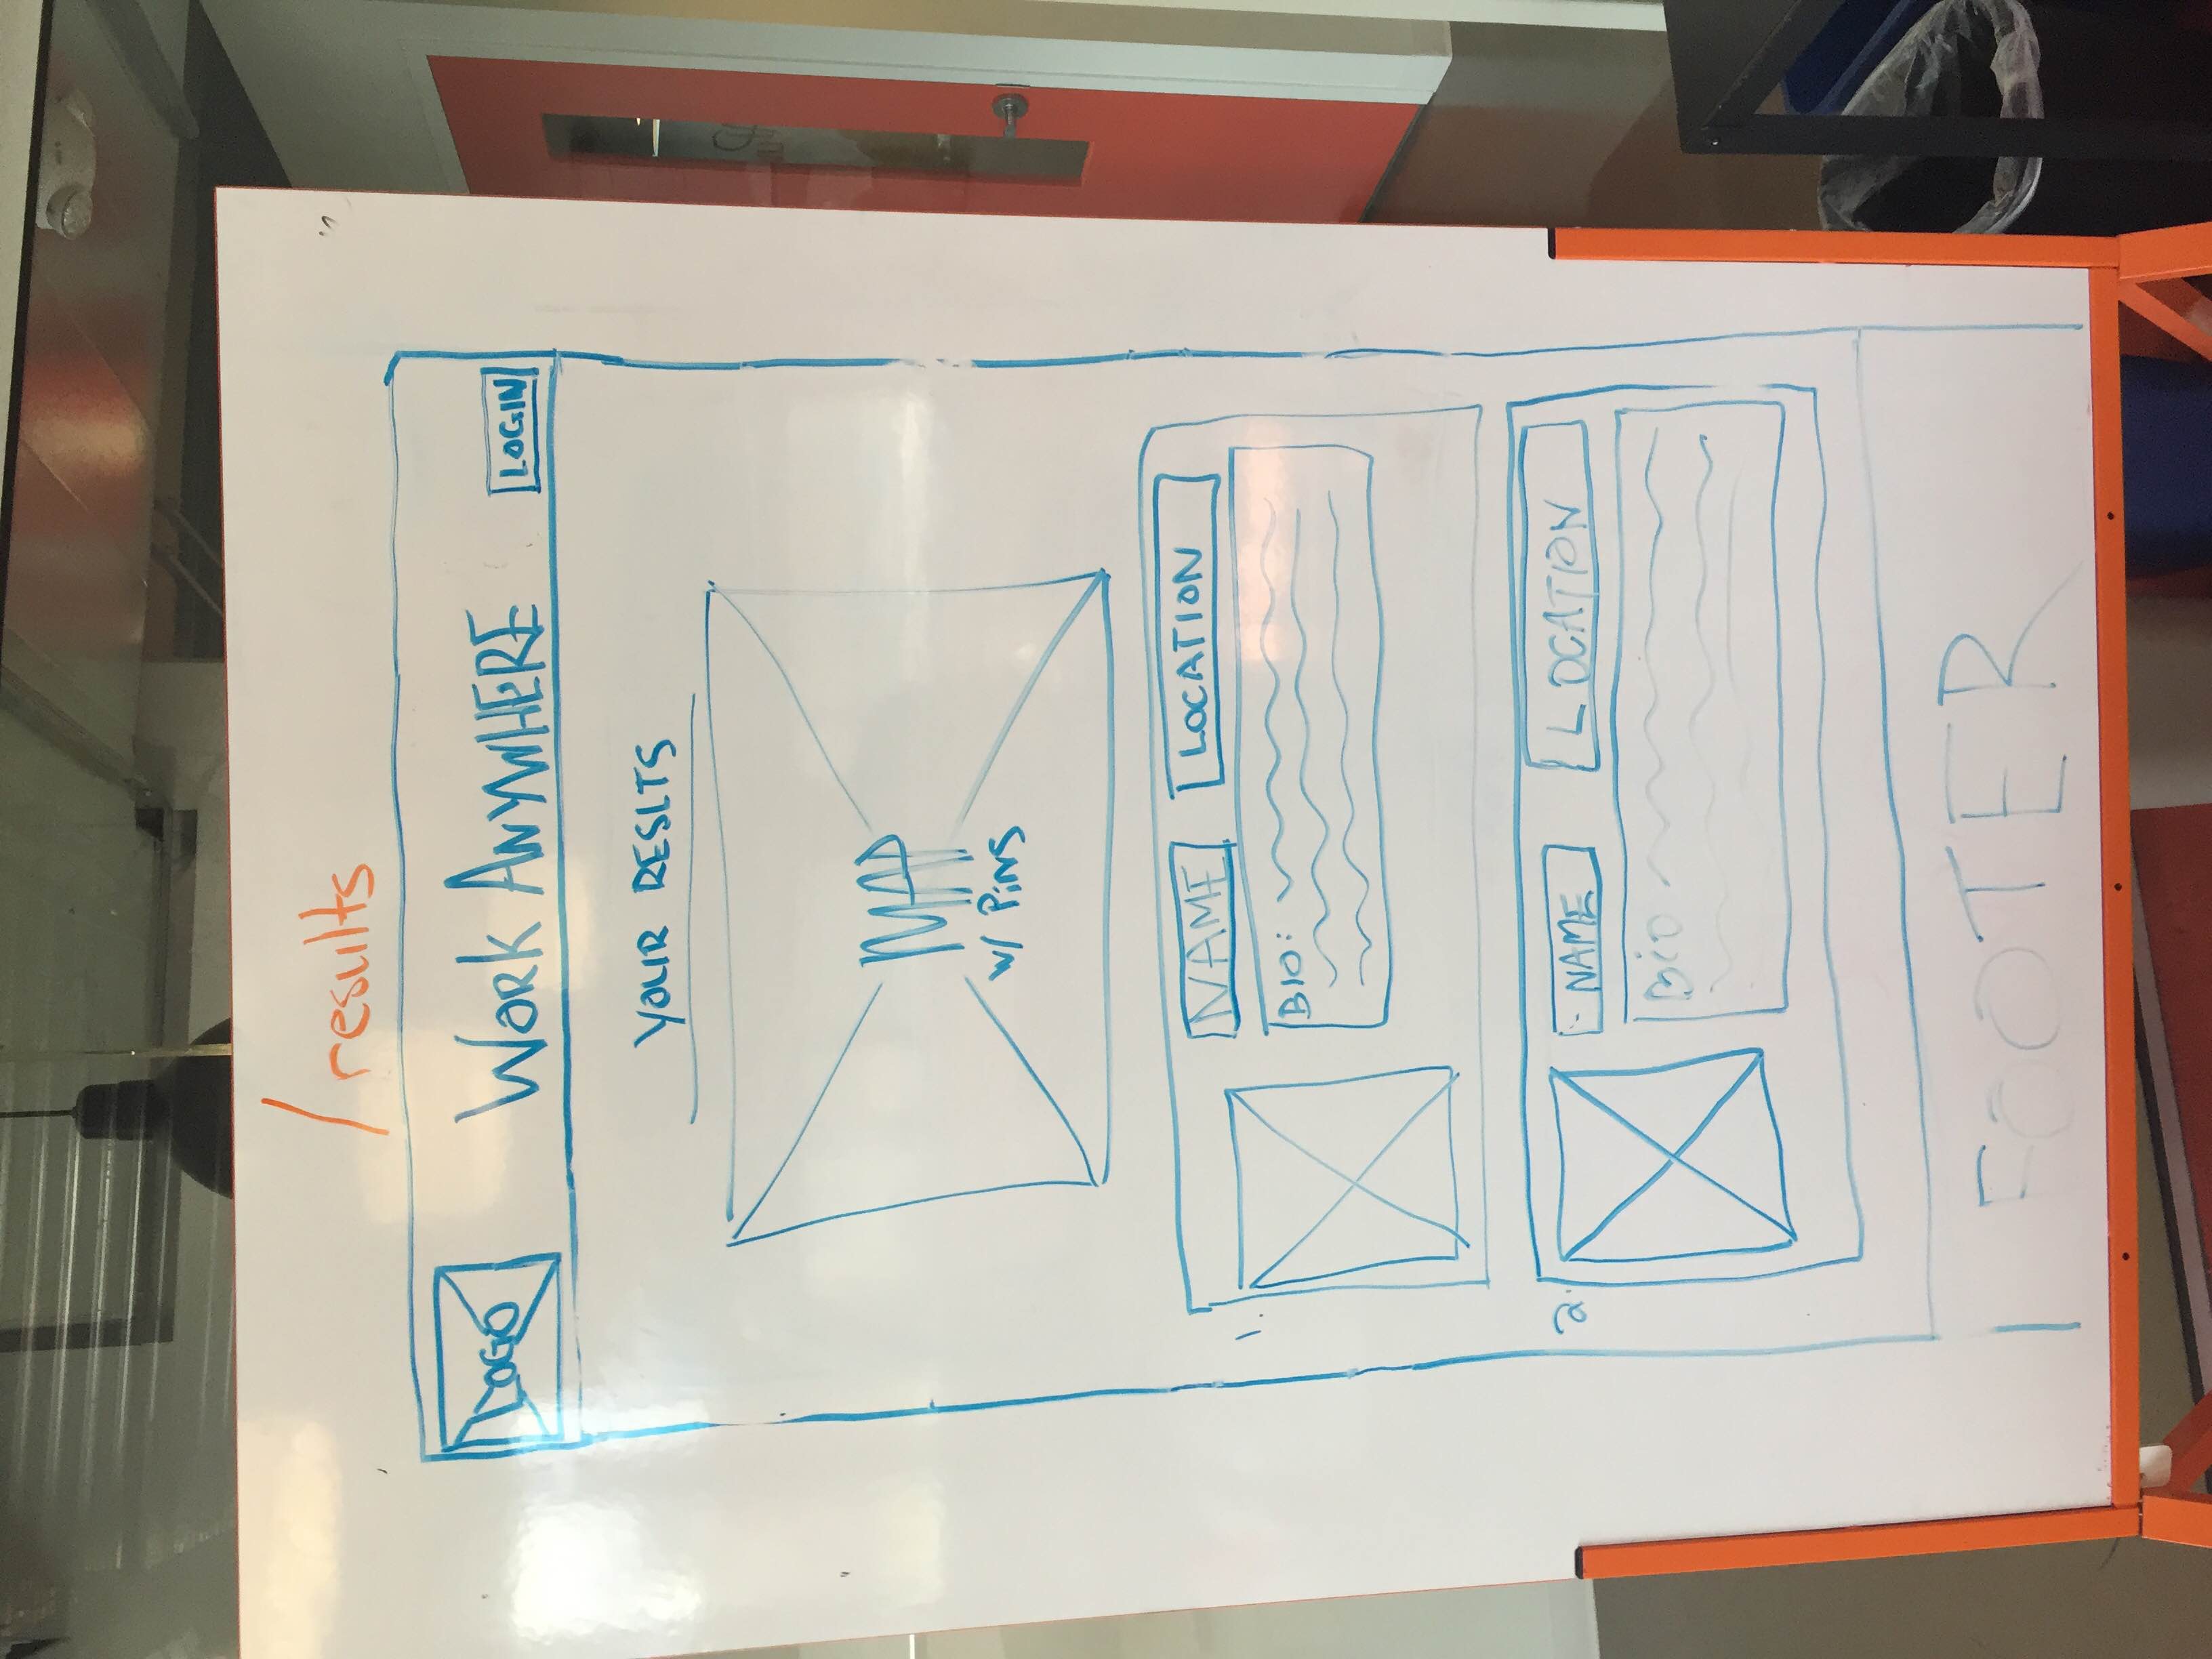 /results
LOGO WORK ANYWHERE LOGIN
YOUR RESLTS
MAP
w/ Pins
NAME LOCATION
1.
BIO:
2. NAME LOCATION
Bio
FOOTER